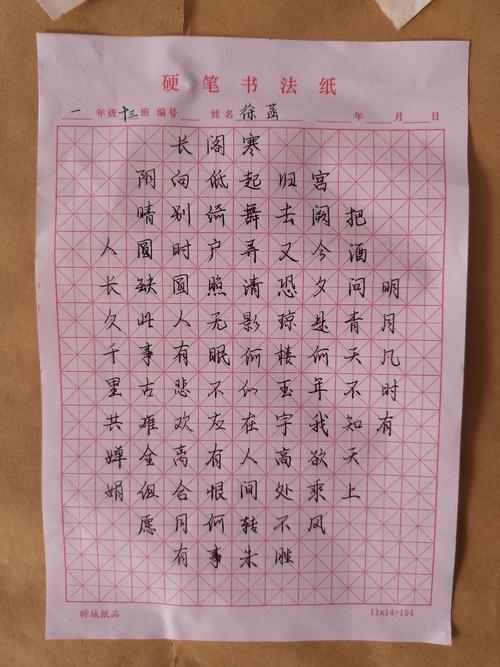 硬笔书法纸
一年级十三班 编号 姓名 徐菡 年 月 日
明月几时有
把酒问青天不知天上
宫阙今夕是何年我欲乘风
归去又恐琼楼玉宇高处不胜
寒起舞弄清影何似在人间转朱
阁低绮户照无眠不应有恨何事
长向别时圆人有悲欢离合月有
阴晴圆缺此事古难全但愿
人长久千里共婵娟
昕城纸品
11x14=154